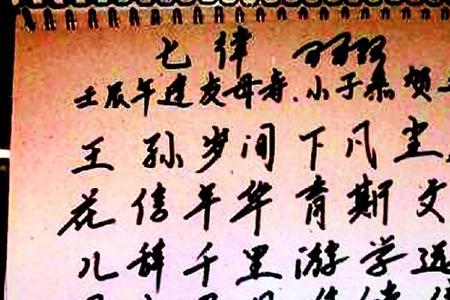 七律
壬辰年逢友母寿,小子恭贺
王孙岁间下凡尘
花信年华育斯文
儿辞千里游学远